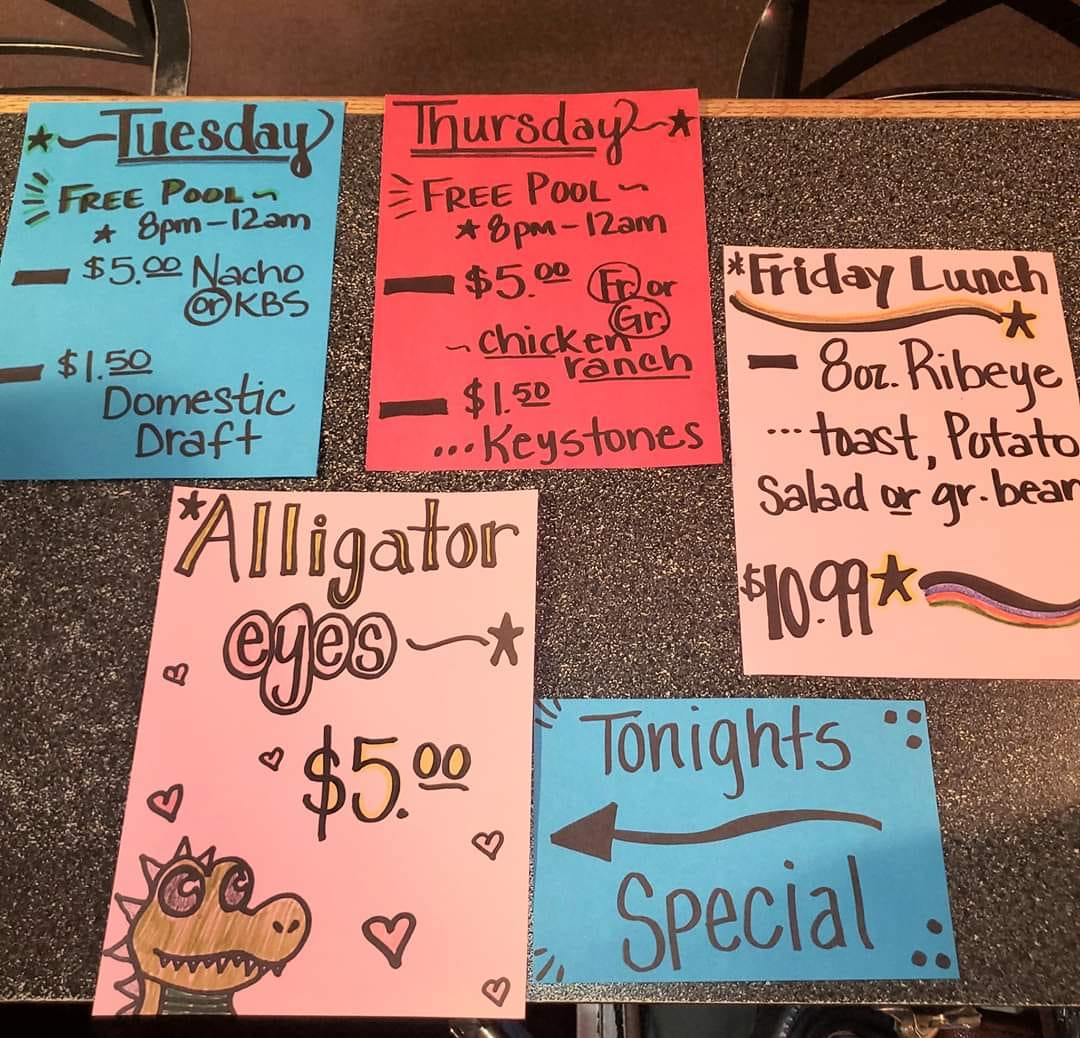 Tuesday
FREE POOL ~
★ 8pm-12am
$5.00 Nacho
or KBS
$1.50
Domestic
Draft
Thursday
FREE POOL ~
★ 8pm-12am
$5.00 Fr. or
Gr.
~ chicken
ranch
$1.50
...Keystones
*Friday Lunch
8oz. Ribeye
... toast, Potato
Salad or gr. bean
$10.99
*Alligator
eyes
$5.00
Tonights
Special